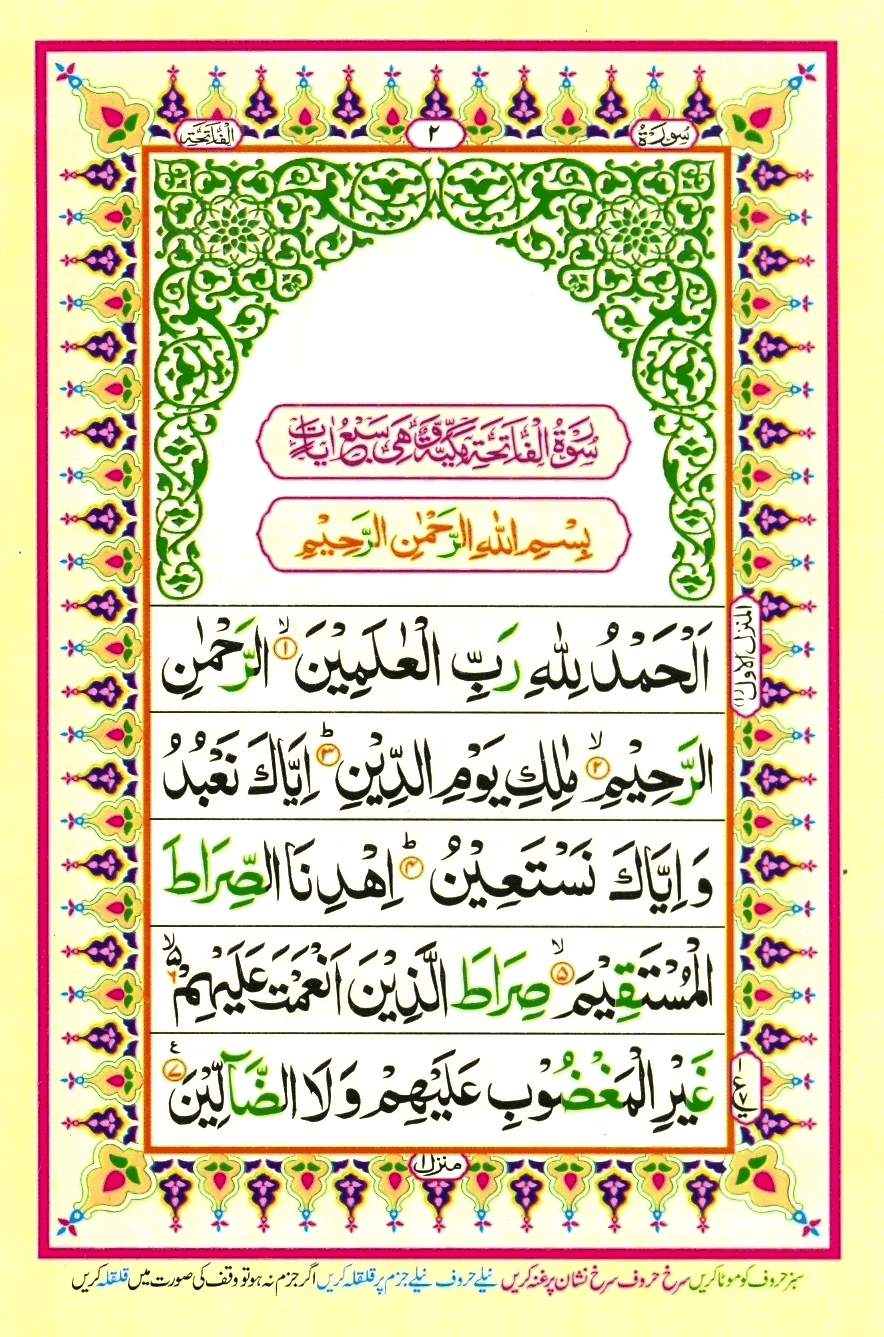 سُورَةُ ٢ الْفَاتِحَة
سُوْرَةُ الْفَاتِحَةِ مَكِّيَّةٌ وَّهِىَ سَبْعُ اٰيَاتٍ
بِسْمِ اللّٰهِ الرَّحْمٰنِ الرَّحِيْمِ
اَلْحَمْدُ لِلّٰهِ رَبِّ الْعٰلَمِيْنَ ۙ﴿۱﴾ الرَّحْمٰنِ
الرَّحِيْمِ ۙ﴿۲﴾ مٰلِكِ يَوْمِ الدِّيْنِ ؕ﴿۳﴾ اِيَّاكَ نَعْبُدُ
وَ اِيَّاكَ نَسْتَعِيْنُ ؕ﴿۴﴾ اِهْدِنَا الصِّرَاطَ
الْمُسْتَقِيْمَ ۙ﴿۵﴾ صِرَاطَ الَّذِيْنَ اَنْعَمْتَ عَلَيْهِمْ ۙ۵ ۶
غَيْرِ الْمَغْضُوْبِ عَلَيْهِمْ وَ لَا الضَّآلِّيْنَ ﴿۷﴾ ع
المنزل الاول (۱)
منزل ۱
سبز حروف کو موٹا کریں سرخ حروف سرخ نشان پر غنہ کریں نیلے حروف نیلے جزم پر قلقلہ کریں اگر جزم نہ ہو تو وقف کی صورت میں قلقلہ کریں